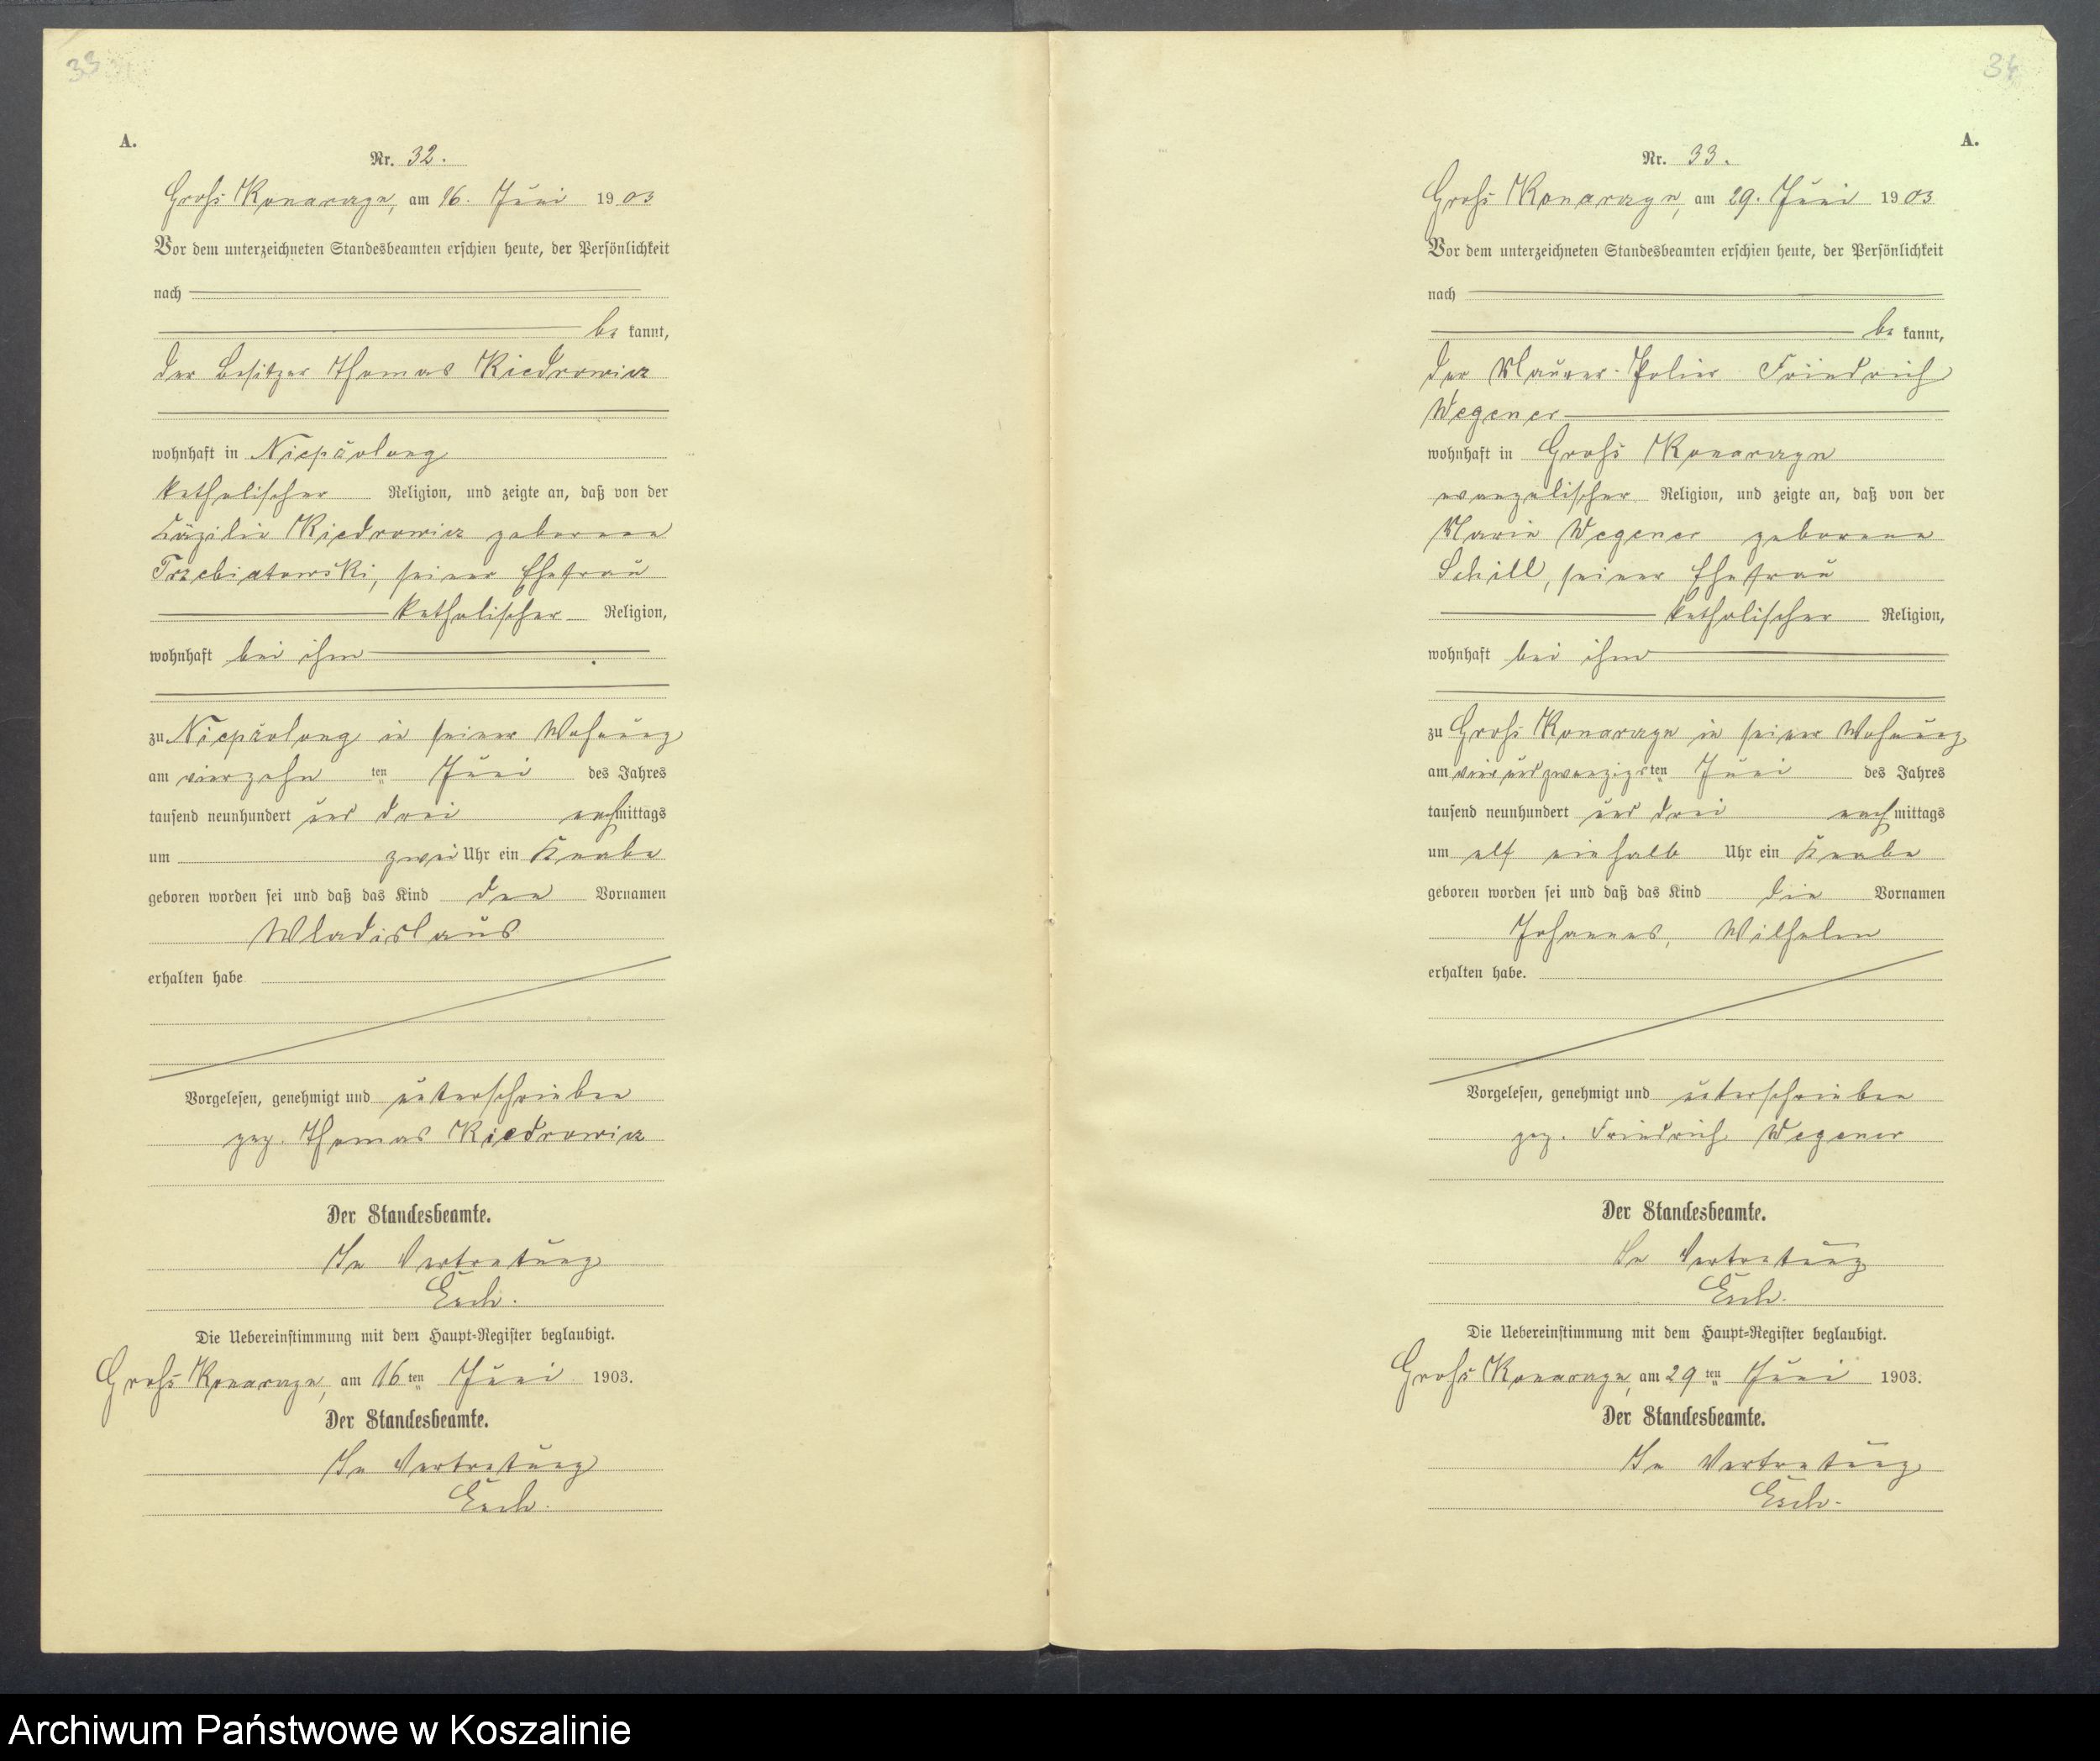 33
A.
Nr. 32.
Groß Konarzyn, am 16. Juni 1903
Vor dem unterzeichneten Standesbeamten erschien heute, der Persönlichkeit
nach
be kannt,
der Besitzer Thomas Kiedrowicz
wohnhaft in Niepsäolong
katholischer Religion, und zeigte an, daß von der
Cäzilie Kiedrowicz geborene
Trzebiatowski, seiner Ehefrau
katholischer Religion,
wohnhaft bei ihm
zu in seiner Wohnung
am vierzehn ten Juni des Jahres
tausend neunhundert und drei nachmittags
um zwei Uhr ein Knabe
geboren worden sei und daß das Kind den Vornamen
Wladislaus
erhalten habe
Vorgelesen, genehmigt und unterschrieben
gez. Thomas Kiedrowicz
Der Standesbeamte.
In Vertretung
Esch.
Die Uebereinstimmung mit dem Haupt-Register beglaubigt.
Groß Konarzyn, am 16ten Juni 1903.
Der Standesbeamte.
In Vertretung
Esch.
34
A.
Nr. 33.
Groß Konarzyn, am 29. Juni 1903
Vor dem unterzeichneten Standesbeamten erschien heute, der Persönlichkeit
nach
be kannt,
der Maurer-Polier Friedrich
Wegener
wohnhaft in Groß Konarzyn
evangelischer Religion, und zeigte an, daß von der
Marie Wegener geborene
Schill, seiner Ehefrau
katholischer Religion,
wohnhaft bei ihm
zu Groß Konarzyn in seiner Wohnung
am vier und zwanzigsten Juni des Jahres
tausend neunhundert und drei nachmittags
um elf einhalb Uhr ein Knabe
geboren worden sei und daß das Kind die Vornamen
Johannes, Wilhelm
erhalten habe.
Vorgelesen, genehmigt und unterschrieben
gez. Friedrich Wegener
Der Standesbeamte.
In Vertretung
Esch.
Die Uebereinstimmung mit dem Haupt-Register beglaubigt.
Groß Konarzyn, am 29ten Juni 1903.
Der Standesbeamte.
In Vertretung
Esch.
Archiwum Państwowe w Koszalinie